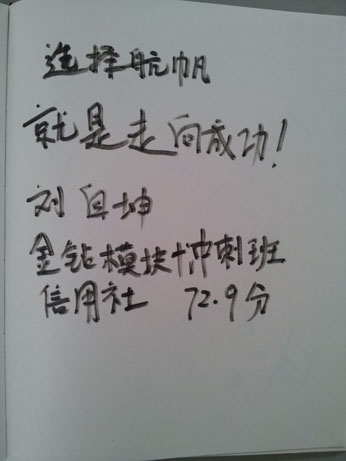 选择航帆
就是走向成功！
刘自坤
金钻模块+冲刺班
信用社 72.9分